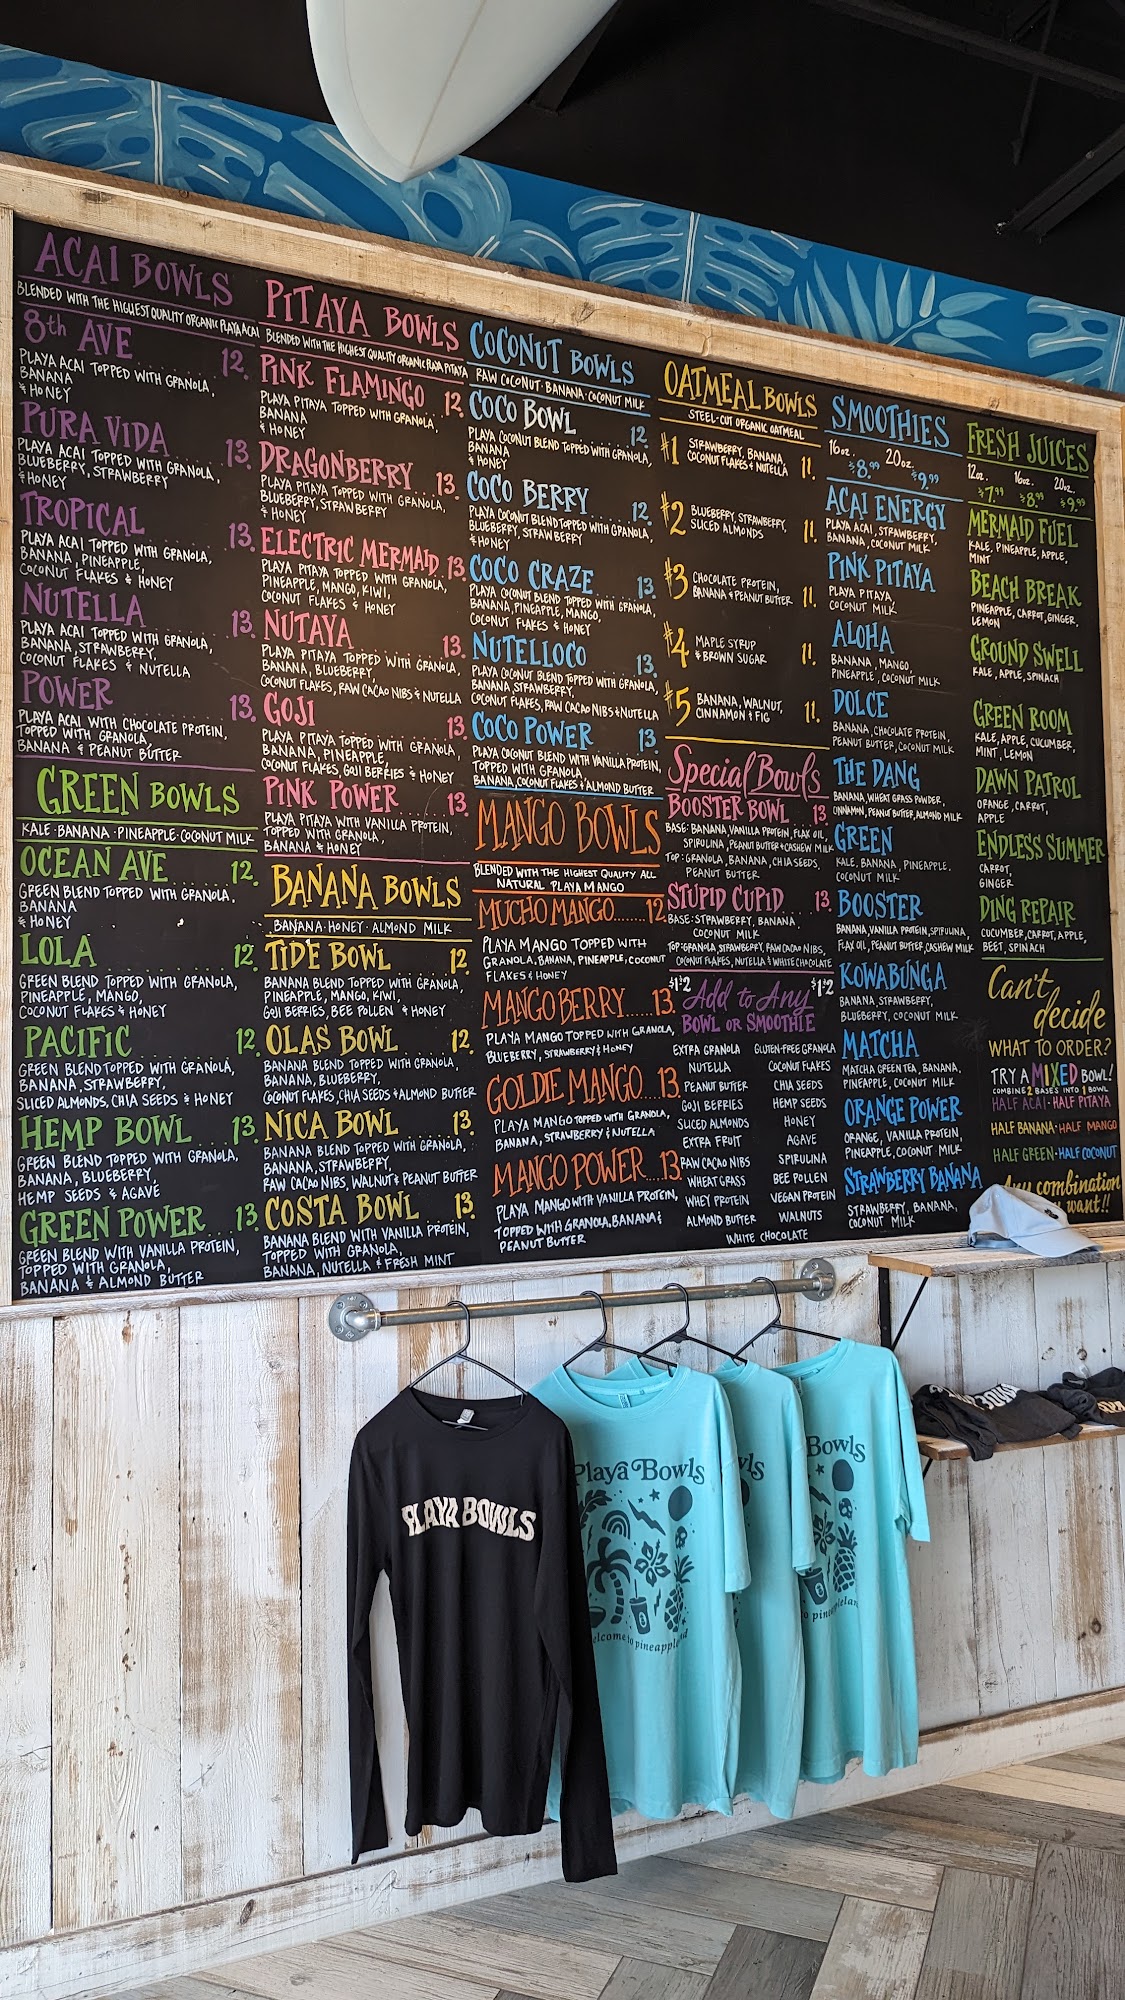 ACAI BOWLS
BLENDED WITH THE HIGHEST QUALITY ORGANIC PLAYA ACAI
8th AVE 12.
PLAYA ACAI TOPPED WITH GRANOLA,
BANANA
& HONEY
PURA VIDA 13.
PLAYA ACAI TOPPED WITH GRANOLA,
BLUEBERRY, STRAWBERRY
& HONEY
TROPICAL 13.
PLAYA ACAI TOPPED WITH GRANOLA,
BANANA, PINEAPPLE,
COCONUT FLAKES & HONEY
NUTELLA 13.
PLAYA ACAI TOPPED WITH GRANOLA,
BANANA, STRAWBERRY,
COCONUT FLAKES & NUTELLA
POWER 13.
PLAYA ACAI WITH CHOCOLATE PROTEIN,
TOPPED WITH GRANOLA,
BANANA & PEANUT BUTTER
GREEN BOWLS
KALE · BANANA · PINEAPPLE · COCONUT MILK
OCEAN AVE 12.
GREEN BLEND TOPPED WITH GRANOLA,
BANANA
& HONEY
LOLA 12.
GREEN BLEND TOPPED WITH GRANOLA,
PINEAPPLE, MANGO,
COCONUT FLAKES & HONEY
PACIFIC 12.
GREEN BLEND TOPPED WITH GRANOLA,
BANANA, STRAWBERRY,
SLICED ALMONDS, CHIA SEEDS & HONEY
HEMP BOWL 13.
GREEN BLEND TOPPED WITH GRANOLA,
BANANA, BLUEBERRY,
HEMP SEEDS & AGAVE
GREEN POWER 13.
GREEN BLEND WITH VANILLA PROTEIN,
TOPPED WITH GRANOLA,
BANANA & ALMOND BUTTER
PITAYA BOWLS
BLENDED WITH THE HIGHEST QUALITY ORGANIC PLAYA PITAYA
PINK FLAMINGO 12.
PLAYA PITAYA TOPPED WITH GRANOLA,
BANANA
& HONEY
DRAGONBERRY 13.
PLAYA PITAYA TOPPED WITH GRANOLA,
BLUEBERRY, STRAWBERRY
& HONEY
ELECTRIC MERMAID 13.
PLAYA PITAYA TOPPED WITH GRANOLA,
PINEAPPLE, MANGO, KIWI,
COCONUT FLAKES & HONEY
NUTAYA 13.
PLAYA PITAYA TOPPED WITH GRANOLA,
BANANA, BLUEBERRY,
COCONUT FLAKES, RAW CACAO NIBS & NUTELLA
GOJI 13.
PLAYA PITAYA TOPPED WITH GRANOLA,
BANANA, PINEAPPLE,
COCONUT FLAKES, GOJI BERRIES & HONEY
PINK POWER 13.
PLAYA PITAYA WITH VANILLA PROTEIN,
TOPPED WITH GRANOLA,
BANANA & HONEY
BANANA BOWLS
BANANA · HONEY · ALMOND MILK
TIDE BOWL 12.
BANANA BLEND TOPPED WITH GRANOLA,
PINEAPPLE, MANGO, KIWI,
GOJI BERRIES, BEE POLLEN & HONEY
OLAS BOWL 12.
BANANA BLEND TOPPED WITH GRANOLA,
BANANA, BLUEBERRY,
COCONUT FLAKES, CHIA SEEDS & ALMOND BUTTER
NICA BOWL 13.
BANANA BLEND TOPPED WITH GRANOLA,
BANANA, STRAWBERRY,
RAW CACAO NIBS, WALNUT & PEANUT BUTTER
COSTA BOWL 13.
BANANA BLEND WITH VANILLA PROTEIN,
TOPPED WITH GRANOLA,
BANANA, NUTELLA & FRESH MINT
COCONUT BOWLS
RAW COCONUT · BANANA · COCONUT MILK
COCO BOWL 12.
PLAYA COCONUT BLEND TOPPED WITH GRANOLA,
BANANA
& HONEY
COCO BERRY 12.
PLAYA COCONUT BLEND TOPPED WITH GRANOLA,
BLUEBERRY, STRAWBERRY
& HONEY
COCO CRAZE 13.
PLAYA COCONUT BLEND TOPPED WITH GRANOLA,
BANANA, PINEAPPLE, MANGO,
COCONUT FLAKES & HONEY
NUTELLOCO 13.
PLAYA COCONUT BLEND TOPPED WITH GRANOLA,
BANANA, STRAWBERRY,
COCONUT FLAKES, RAW CACAO NIBS & NUTELLA
COCO POWER 13.
PLAYA COCONUT BLEND WITH VANILLA PROTEIN,
TOPPED WITH GRANOLA,
BANANA, COCONUT FLAKES & ALMOND BUTTER
MANGO BOWLS
BLENDED WITH THE HIGHEST QUALITY ALL
NATURAL PLAYA MANGO
MUCHO MANGO 12
PLAYA MANGO TOPPED WITH
GRANOLA, BANANA, PINEAPPLE, COCONUT
FLAKES & HONEY
MANGO BERRY 13.
PLAYA MANGO TOPPED WITH GRANOLA,
BLUEBERRY, STRAWBERRY & HONEY
GOLDIE MANGO 13
PLAYA MANGO TOPPED WITH GRANOLA,
BANANA, STRAWBERRY & NUTELLA
MANGO POWER 13
PLAYA MANGO WITH VANILLA PROTEIN,
TOPPED WITH GRANOLA, BANANA &
PEANUT BUTTER
OATMEAL BOWLS
STEEL-CUT ORGANIC OATMEAL
#1 STRAWBERRY, BANANA, 11.
COCONUT FLAKES & NUTELLA
#2 BLUEBERRY, STRAWBERRY, 11.
SLICED ALMONDS
#3 CHOCOLATE PROTEIN, 11.
BANANA & PEANUT BUTTER
#4 MAPLE SYRUP 11.
& BROWN SUGAR
#5 BANANA, WALNUT, 11.
CINNAMON & FIG
Special Bowls
BOOSTER BOWL 13
BASE: BANANA, VANILLA PROTEIN, FLAX OIL,
SPIRULINA, PEANUT BUTTER & CASHEW MILK
TOP: GRANOLA, BANANA, CHIA SEEDS,
PEANUT BUTTER
STUPID CUPID 13
BASE: STRAWBERRY, BANANA,
COCONUT MILK
TOP: GRANOLA, STRAWBERRY, RAW CACAO NIBS,
COCONUT FLAKES, NUTELLA & WHITE CHOCOLATE
$1-$2 Add to Any $1-$2
BOWL OR SMOOTHIE
EXTRA GRANOLA GLUTEN-FREE GRANOLA
NUTELLA COCONUT FLAKES
PEANUT BUTTER CHIA SEEDS
GOJI BERRIES HEMP SEEDS
SLICED ALMONDS HONEY
EXTRA FRUIT AGAVE
RAW CACAO NIBS SPIRULINA
WHEAT GRASS BEE POLLEN
WHEY PROTEIN VEGAN PROTEIN
ALMOND BUTTER WALNUTS
WHITE CHOCOLATE
SMOOTHIES
16oz. 20oz.
$8.99 $9.99
ACAI ENERGY
PLAYA ACAI, STRAWBERRY,
BANANA, COCONUT MILK
PINK PITAYA
PLAYA PITAYA,
COCONUT MILK
ALOHA
BANANA, MANGO,
PINEAPPLE, COCONUT MILK
DOLCE
BANANA, CHOCOLATE PROTEIN,
PEANUT BUTTER, COCONUT MILK
THE DANG
BANANA, WHEAT GRASS POWDER,
CINNAMON, PEANUT BUTTER, ALMOND MILK
GREEN
KALE, BANANA, PINEAPPLE,
COCONUT MILK
BOOSTER
BANANA, VANILLA PROTEIN, SPIRULINA,
FLAX OIL, PEANUT BUTTER, CASHEW MILK
KOWABUNGA
BANANA, STRAWBERRY,
BLUEBERRY, COCONUT MILK
MATCHA
MATCHA GREEN TEA, BANANA,
PINEAPPLE, COCONUT MILK
ORANGE POWER
ORANGE, VANILLA PROTEIN,
PINEAPPLE, COCONUT MILK
STRAWBERRY BANANA
STRAWBERRY, BANANA,
COCONUT MILK
FRESH JUICES
12oz. 16oz. 20oz.
$7.99 $8.99 $9.99
MERMAID FUEL
KALE, PINEAPPLE, APPLE,
MINT
BEACH BREAK
PINEAPPLE, CARROT, GINGER,
LEMON
GROUND SWELL
KALE, APPLE, SPINACH
GREEN ROOM
KALE, APPLE, CUCUMBER,
MINT, LEMON
DAWN PATROL
ORANGE, CARROT,
APPLE
ENDLESS SUMMER
CARROT,
GINGER
DING REPAIR
CUCUMBER, CARROT, APPLE,
BEET, SPINACH
Can't
decide
WHAT TO ORDER?
TRY A MIXED BOWL!
COMBINE 2 BASES INTO 1 BOWL
HALF ACAI · HALF PITAYA
HALF BANANA · HALF MANGO
HALF GREEN · HALF COCONUT
Any combination
want!!
PLAYA BOWLS
Playa Bowls
welcome to pineappleland
wls
Bowls
to pineappleland